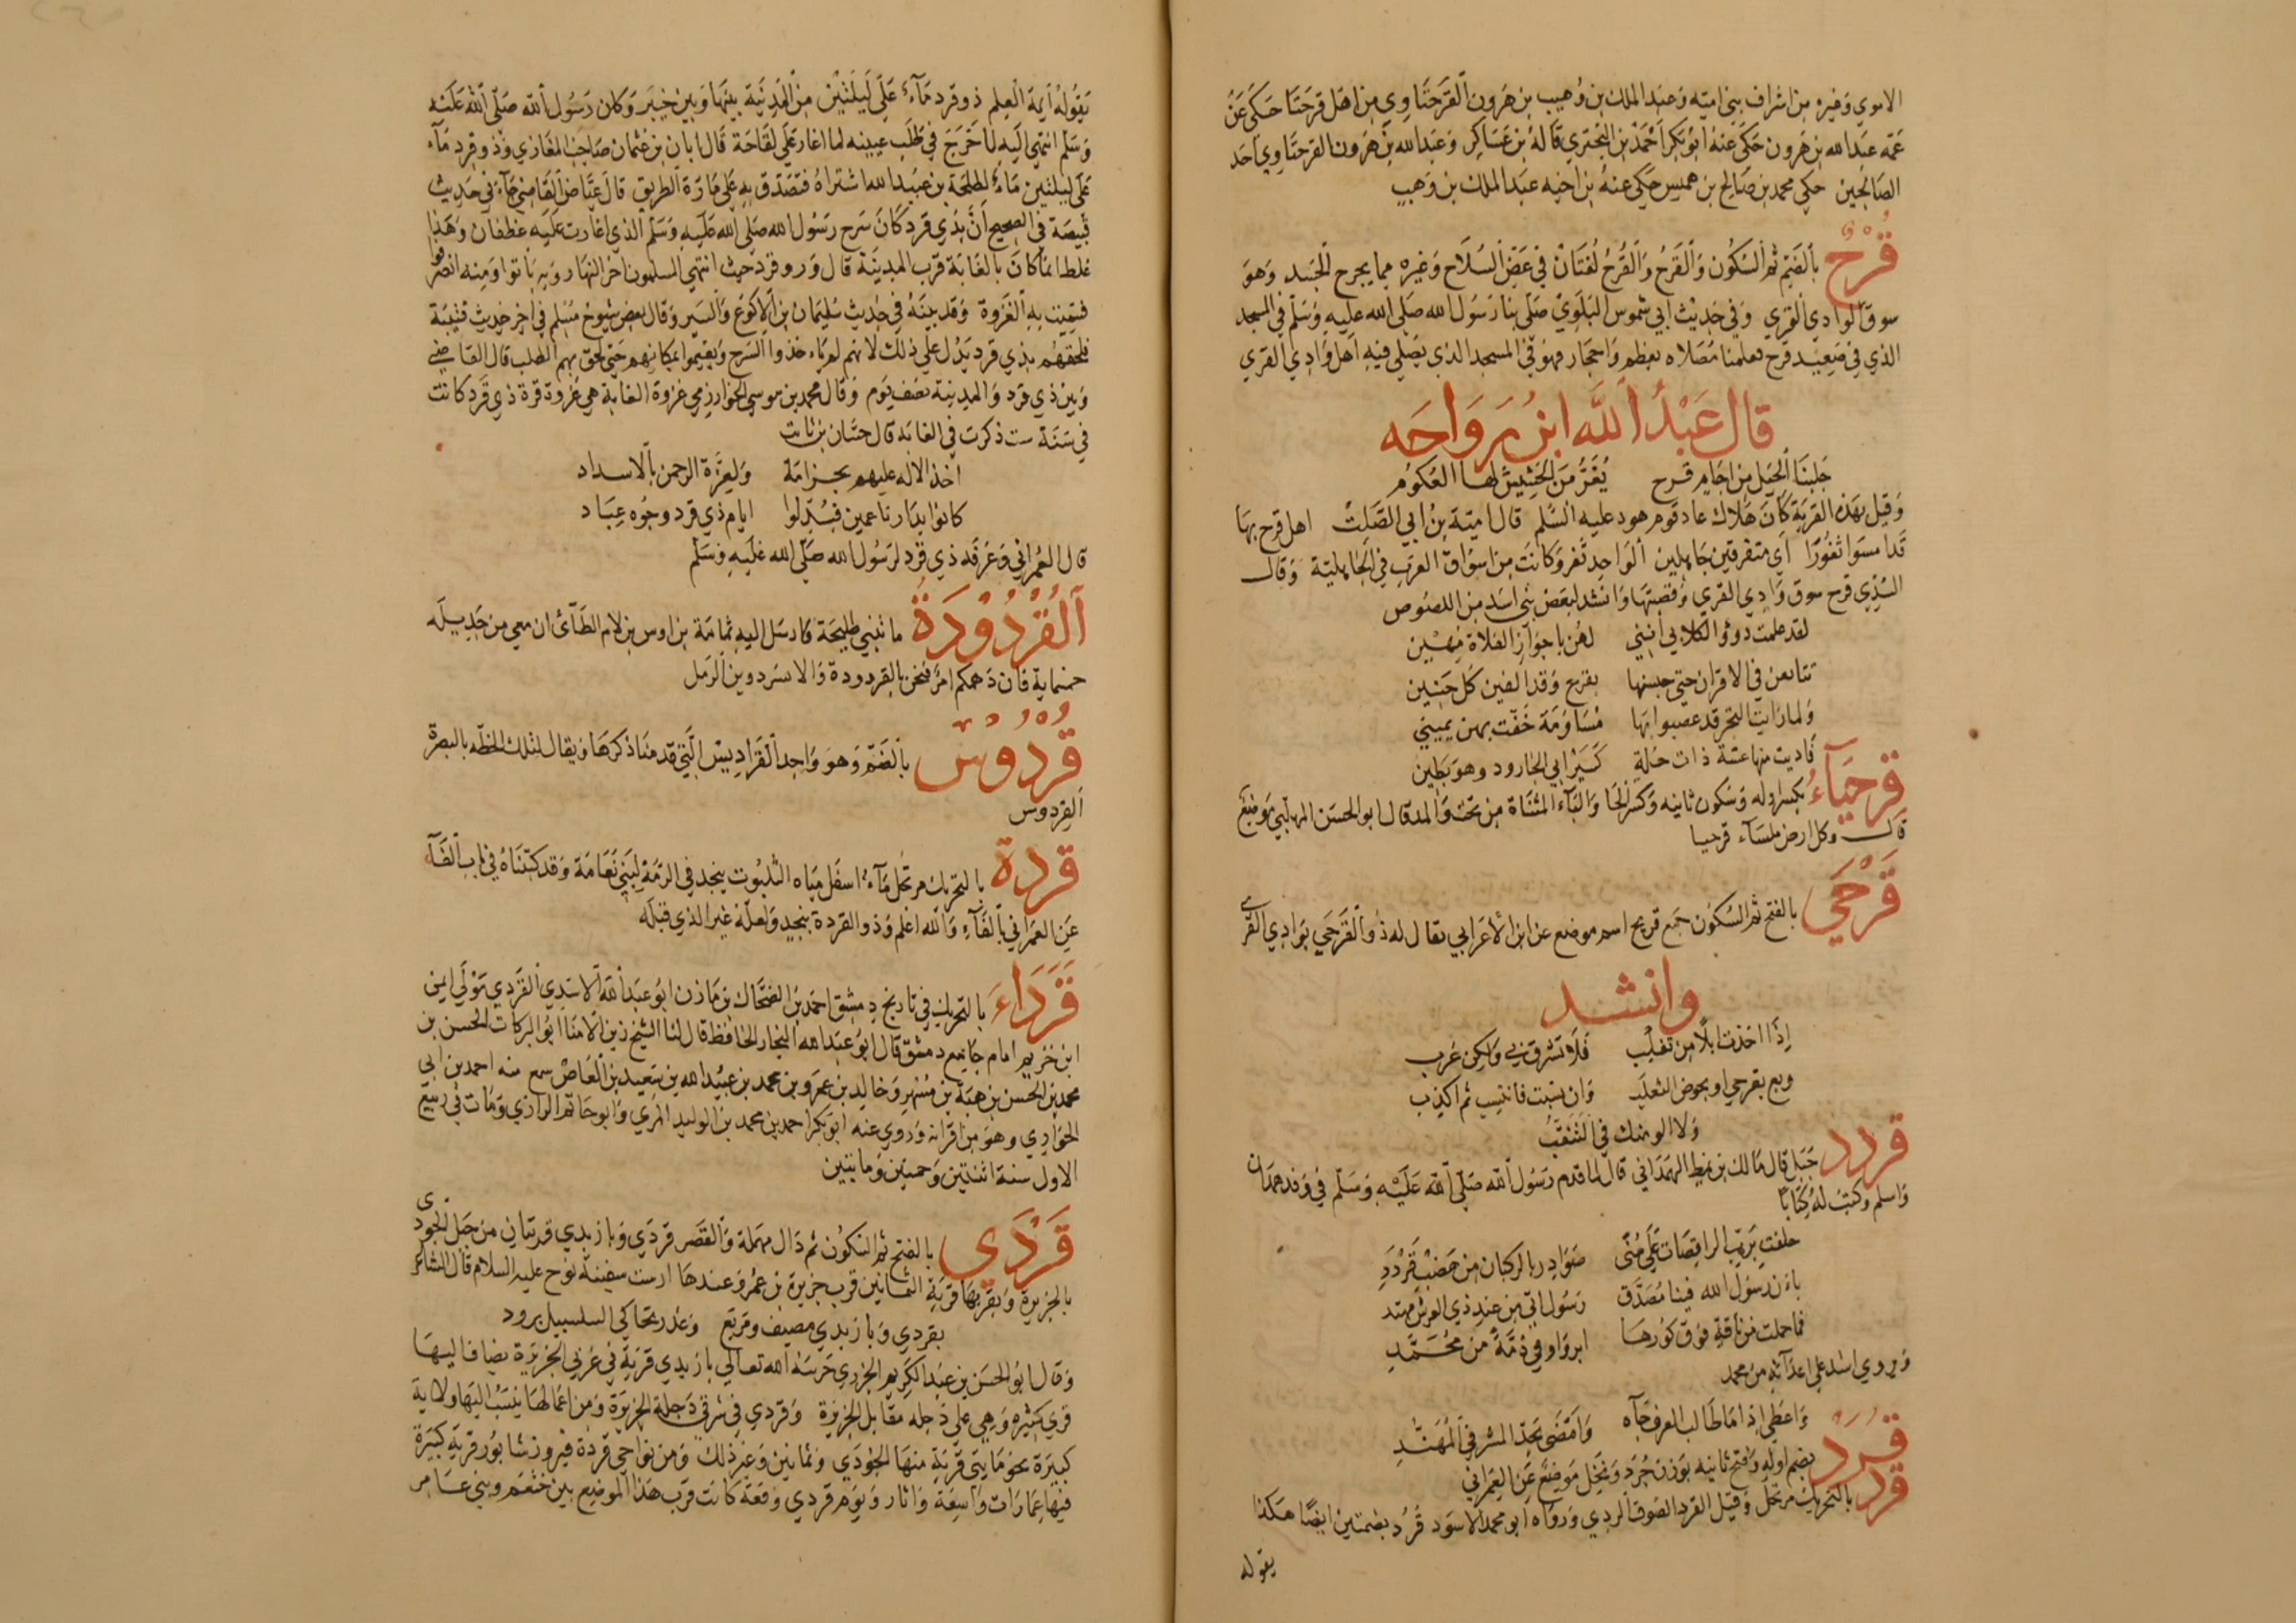 الاموي وغيره من اشراف بني امية وعبد الملك بن وهيب بن هرون القرحتاوي من اهل قرحتا حكى عن
عمه عبد الله بن هرون حكى عنه ابو بكر احمد بن البختري قاله بن عساكر وعبد الله بن هرون القرحتاوي احد
الصالحين حكي محمد بن صالح بن هميس حكي عنه بن اخيه عبد الملك بن وهيب
قُرْحٌ بالضم ثم السكون والقرح والقرح لغتان في عض السلاح وغيره مما يجرح الجسد وهو
سوق الوادي القري وفي حديث ابي شموس البلوي صلى بنا رسول الله صلى الله عليه وسلم في المسجد
الذي في صعيد قرح فعلمنا مصلاه بعظم واحجار فهو في المسجد الذي يصلي فيه اهل وادي القري
قال عَبْدُ اللَّه ابنُ رَوَاحَه
جلبنا الخيل من اجام قرح يُغَرُّ من الحشيش لها العكوم
وقيل بهذه القرية كان هلاك عاد قوم هود عليه السلم قال امية بن ابي الصلت اهل قرح بها
قد امسوا ثغورا اي متفرقين جاهلين الواحد ثغر وكانت من اسواق العرب في الجاهلية وقال
السدي قرح سوق وادي القري وقصبتها وانشد لبعض بني اسد من اللصوص
لقد علمت دوذ الكلابي انني لهن باجواز الفلاة مهين
تتابعن في الاقران حتى حبستها بقرح وقد القين كل جنين
ولما رايت التجر قد عصبوا بها مساومة خفت بهن يميني
فاديت منها عشة ذات حلة كسير ابي الجارود وهو بطين
قِرحِيَاءُ بكسر اوله وسكون ثانيه وكسر الحا والياء المثناة من تحت والمد قال ابو الحسن المهلبي موضع
قال وكل ارض ملساء قرحيا
قَرْحَي بالفتح ثم السكون جمع قريح اسم موضع عن ابن الاعرابي يقال له ذو القرحي بوادي القري
وانشد
إذا اخذت ابلا من تغلب فلا تشرق بي ولكن غرب
وبع بقرحي او بحوض الثعلب وان نسبت فانتسب ثم اكذب
ولا الومنك في التنقب
قردد جبل قال مالك بن نمط الهمداني قال لما قدم رسول الله صلى الله عليه وسلم في وفد همدان
واسلم وكتب له كتابا
حلفت برب الراقصات على منى صوادر بالركبان من هضب قردد
بان رسول الله فينا مصدق رسول اتى من عند ذي العرش مهتد
فما حملت من ناقة فوق كورها ابر واوفي ذمة من محمد
ويروي اشد علي اعدائه من محمد
واعطي اذا ما طالب العرف جاه وامضى بحد المشرفي المهند
قُرَد بضم اوله وفتح ثانيه بوزن جرد ونخل موضع عن العمراني
قرد بالتحريك مرتجل وقيل القرد الصوف الردي ورواه ابو محمد الاسود قُرُد بضمتين ايضا هكذا
يقوله
يقوله أيمة العلم ذو قرد ماء على ليلتين من المدينة بينها وبين خيبر وكان رسول الله صلى الله عليه
وسلم انتهى اليه لما خرج في طلب عيينه لما اغار علي لقاحة قال ابان بن عثمان صاحب المغازي وذو قرد ماء
على ليلتين ماء لطلحة بن عبيد الله اشتراه فتصدق به على مارة الطريق قال عياض القاضي جاء في حديث
قبيصة في الصحيح ان بذي قرد كان سرح رسول الله صلى الله عليه وسلم الذي اغارت عليه غطفان وهذا
غلط انما كان بالغابة قرب المدينة قال وذو قرد حيث انتهى المسلمون اخر النهار وبه باتوا ومنه انصرفوا
فسميت به الغزوة وقد بينه في حديث سليمان بن الاكوع والسير وقال بعض شيوخ مسلم في اخر حديث قتيبة
فلحقهم بذي قرد يدل علي ذلك لانهم لم ياخذوا السرح ويقيموا بمكانهم حتى لحق بهم الطلب قال القاضي
وبين ذي قرد والمدينة نصف يوم وقال محمد بن موسي الخوارزمي غزوة الغابة هي غزوة قرة ذي قرد كانت
في سنة ست ذكرت في الغابه قال حسان بن ثابت
اخذ الاله عليهم بحزامة ولعزة الرحمن بالاسداد
كانوا بدار ناعمين فبدلوا ايام ذي قرد وجوه عباد
قال العمراني وغرقد ذي قرد لرسول الله صلى الله عليه وسلم
اَلقُرْدُوْدَةُ ما تثني طليحة فارسل اليه ثمامة بن اوس بن لام الطائ ان معي من جديله
خمسماية فان دهمكم امر فنحن بالقردودة والانسر دوين الرمل
قُرْدُوْسٌ بالضم وهو واحد القراديس التي قدمنا ذكرها ويقال لتلك الخطه بالبصرة
القردوس
قردة بالتحريك مرتجل ماء اسفل مياه الثلبوت بنجد في الرمة لبني نعامة وقد كتبناه في باب الفاء
عن العمراني بالفاء والله اعلم وذو القردة بنجد ولعله غير الذي قبله
قَرَدَاءَ بالتحريك في تاريخ دمشق احمد بن الضحاك بن مازن ابو عبد الله الاسدي القردي مولي ايمن
ابن خزيم امام جامع دمشق قال ابو عبد الله النجار الحافظ قال لنا الشيخ زين الامنا ابو البركات الحسن بن
محمد بن الحسن بن هبة بن مسهر وخالد بن عمرو بن محمد بن عبيد الله بن سعيد بن العاص سمع منه احمد بن ابي
الحواري وهو من اقرانه وروي عنه ابو بكر احمد بن محمد بن الوليد المري وابو حاتم الرازي ومات في ربيع
الاول سنة اثنتين وخمسين ومايتين
قَرْدَي بالفتح ثم السكون ثم دال مهملة والقصر قردي وبازبدي قريتان من جبل الجودي
بالجزيرة وبقربها قرية الثمانين قرب جزيرة بن عمر وعندها ارست سفينة نوح عليه السلام قال الشاعر
بقردي وبازبدي مصيف ومربع وعذب يحاكي السلسبيل برود
وقال ابو الحسن بن عبد الكريم الجزري حرسه الله تعالي بازبدي قرية في غربي الجزيرة يضاف اليها
قري كثيره وهي على دجله مقابل الجزيرة وقردي في شرقي دجلة الجزيرة ومن اعمالها ينسب اليها ولاية
كبيرة نحو مايتي قرية منها الجودي وثمانين وغير ذلك ومن نواحي قردة فيروزشابور قرية كبيرة
فيها عمارات واسعة واثار ويوم قردي وقعة كانت قرب هذا الموضع بين خثعم وبني عامر